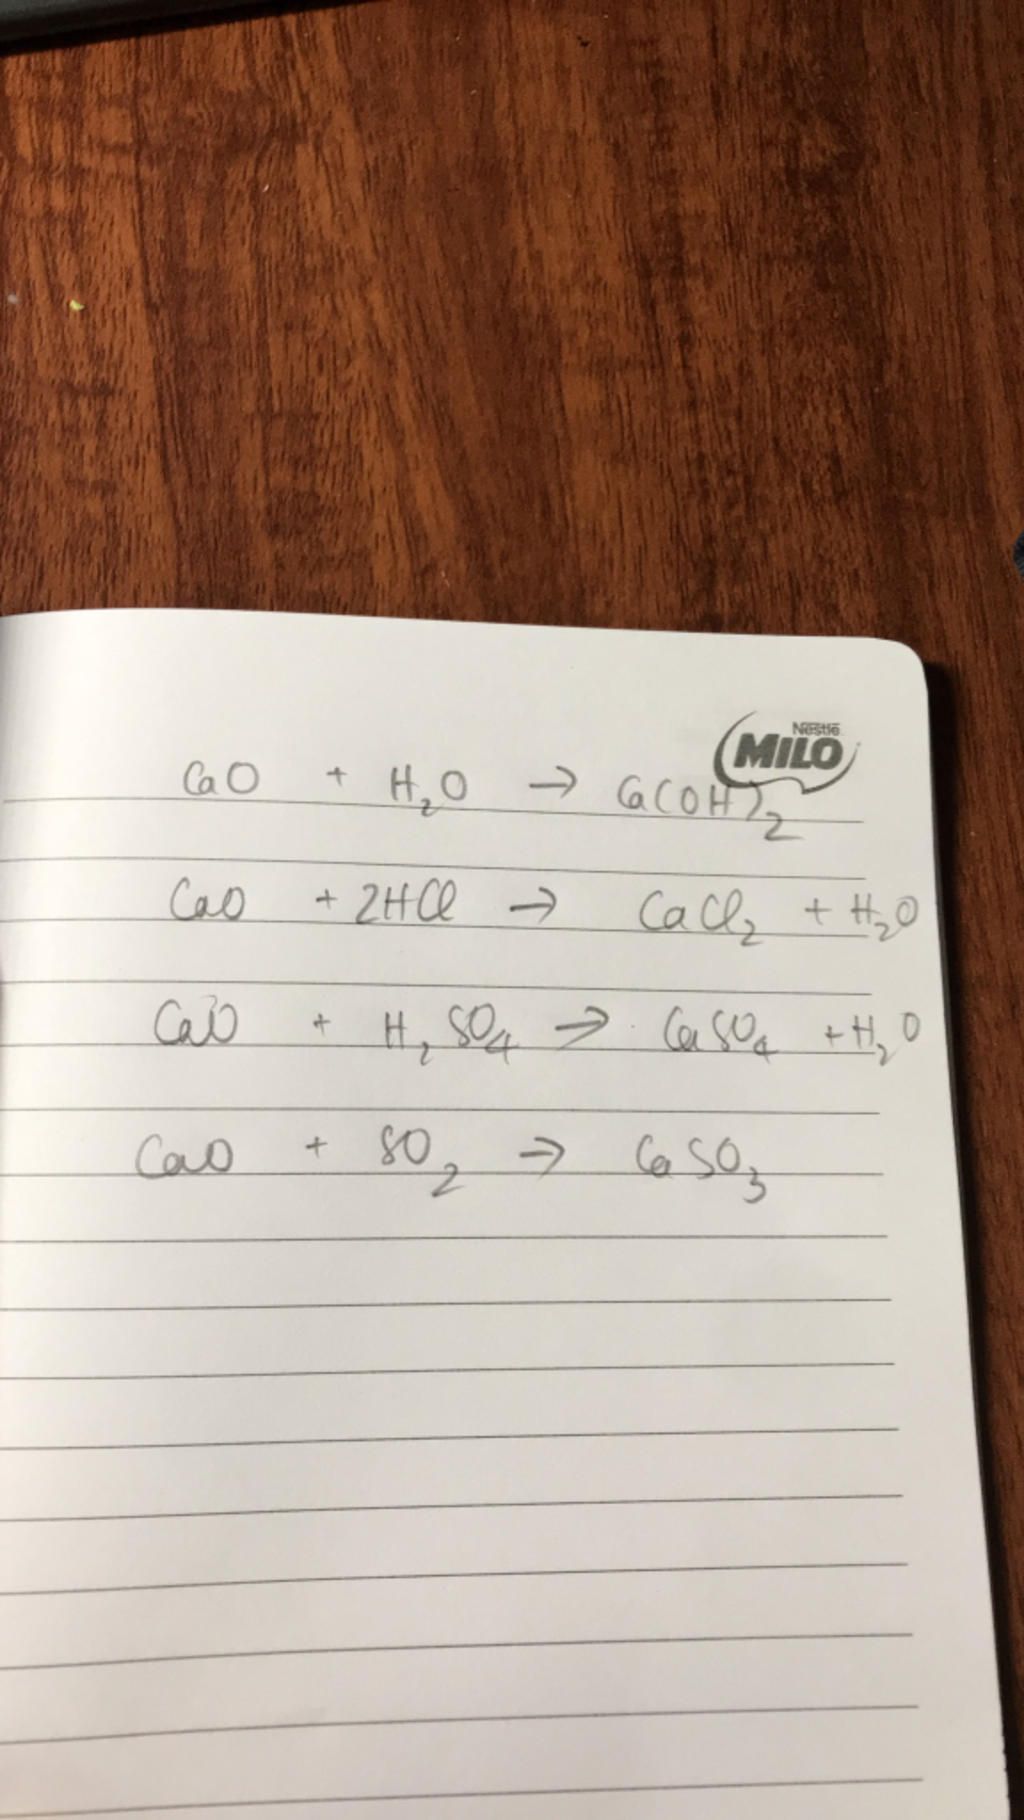 Nestlé
MILO
CaO + H₂O → Ca(OH)₂
CaO + 2HCl → CaCl₂ + H₂O
CaO + H₂SO₄ → CaSO₄ + H₂O
CaO + SO₂ → CaSO₃